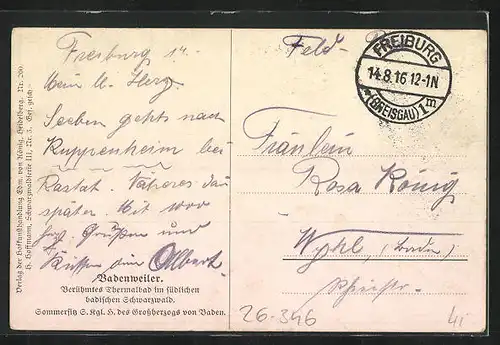 Freiburg
Mein lb. Herz.
Soeben gehts nach
Kuppenheim bei
Rastat. Näheres
später. Mit 1000
Grüßen und
Küssen dein Albert
Badenweiler.
Berühmtes Thermalbad im südlichen
badischen Schwarzwald.
Sommersitz S. Kgl. H. des Großherzogs von Baden.
Verlag der Hofkunsthandlung Edm. von König, Heidelberg. Nr. 200.
H. Hoffmann, Schwarzwaldserie III, Nr. 3. Ges. gesch.
Feld-
FREIBURG
14.8.16 12-1N
* (BREISGAU) 1m
Fräulein
Rosa König
Wyhl, (Baden)
26-346